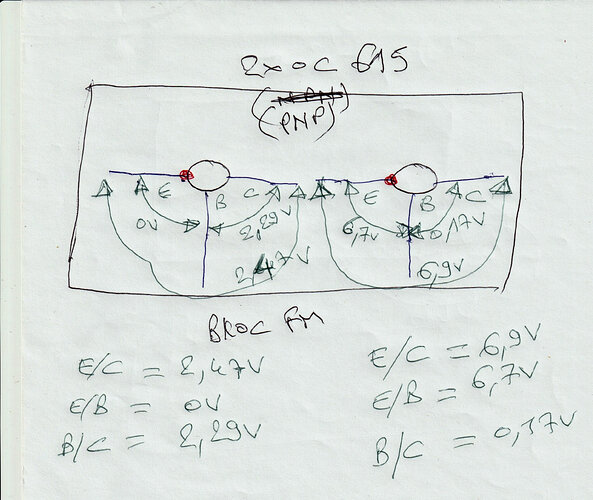 2xOC 615
(NPN)
(PNP)
E B C E B C
0V 2,29V 6,7V 0,17V
2,47V 6,9V
BLOC FM
E/C = 2,47V
E/B = 0V
B/C = 2,29V
E/C = 6,9V
E/B = 6,7V
B/C = 0,17V